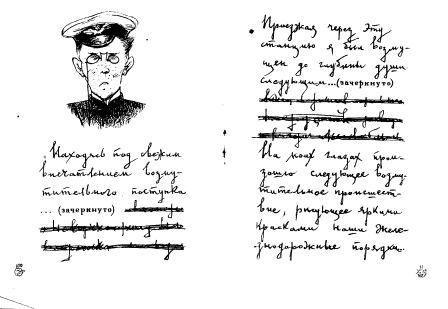 Находясь под свежим
впечатлением возму-
тительного поступка
... (зачеркнуто)
Проезжая через эту
станцию я был возму-
щен до глубины души
следующим...(зачеркнуто)
На моих глазах прои-
зошло следующее возму-
тительное происшест-
вие, рисующее яркими
красками наши желе-
знодорожные порядки...